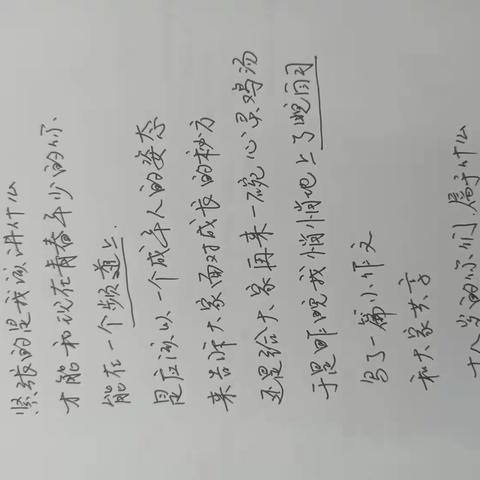 紧张的是我该讲什么
才能和现在青春年少的你、
能在一个频道上.
是应该以一个成年人的姿态
来告诉大家面对成长的秘方
还是给大家再来一碗心灵鸡汤
于是昨晚我悄悄地上了晚自习
写了一篇小作文
和大家共享
十八岁的你们,属于什么